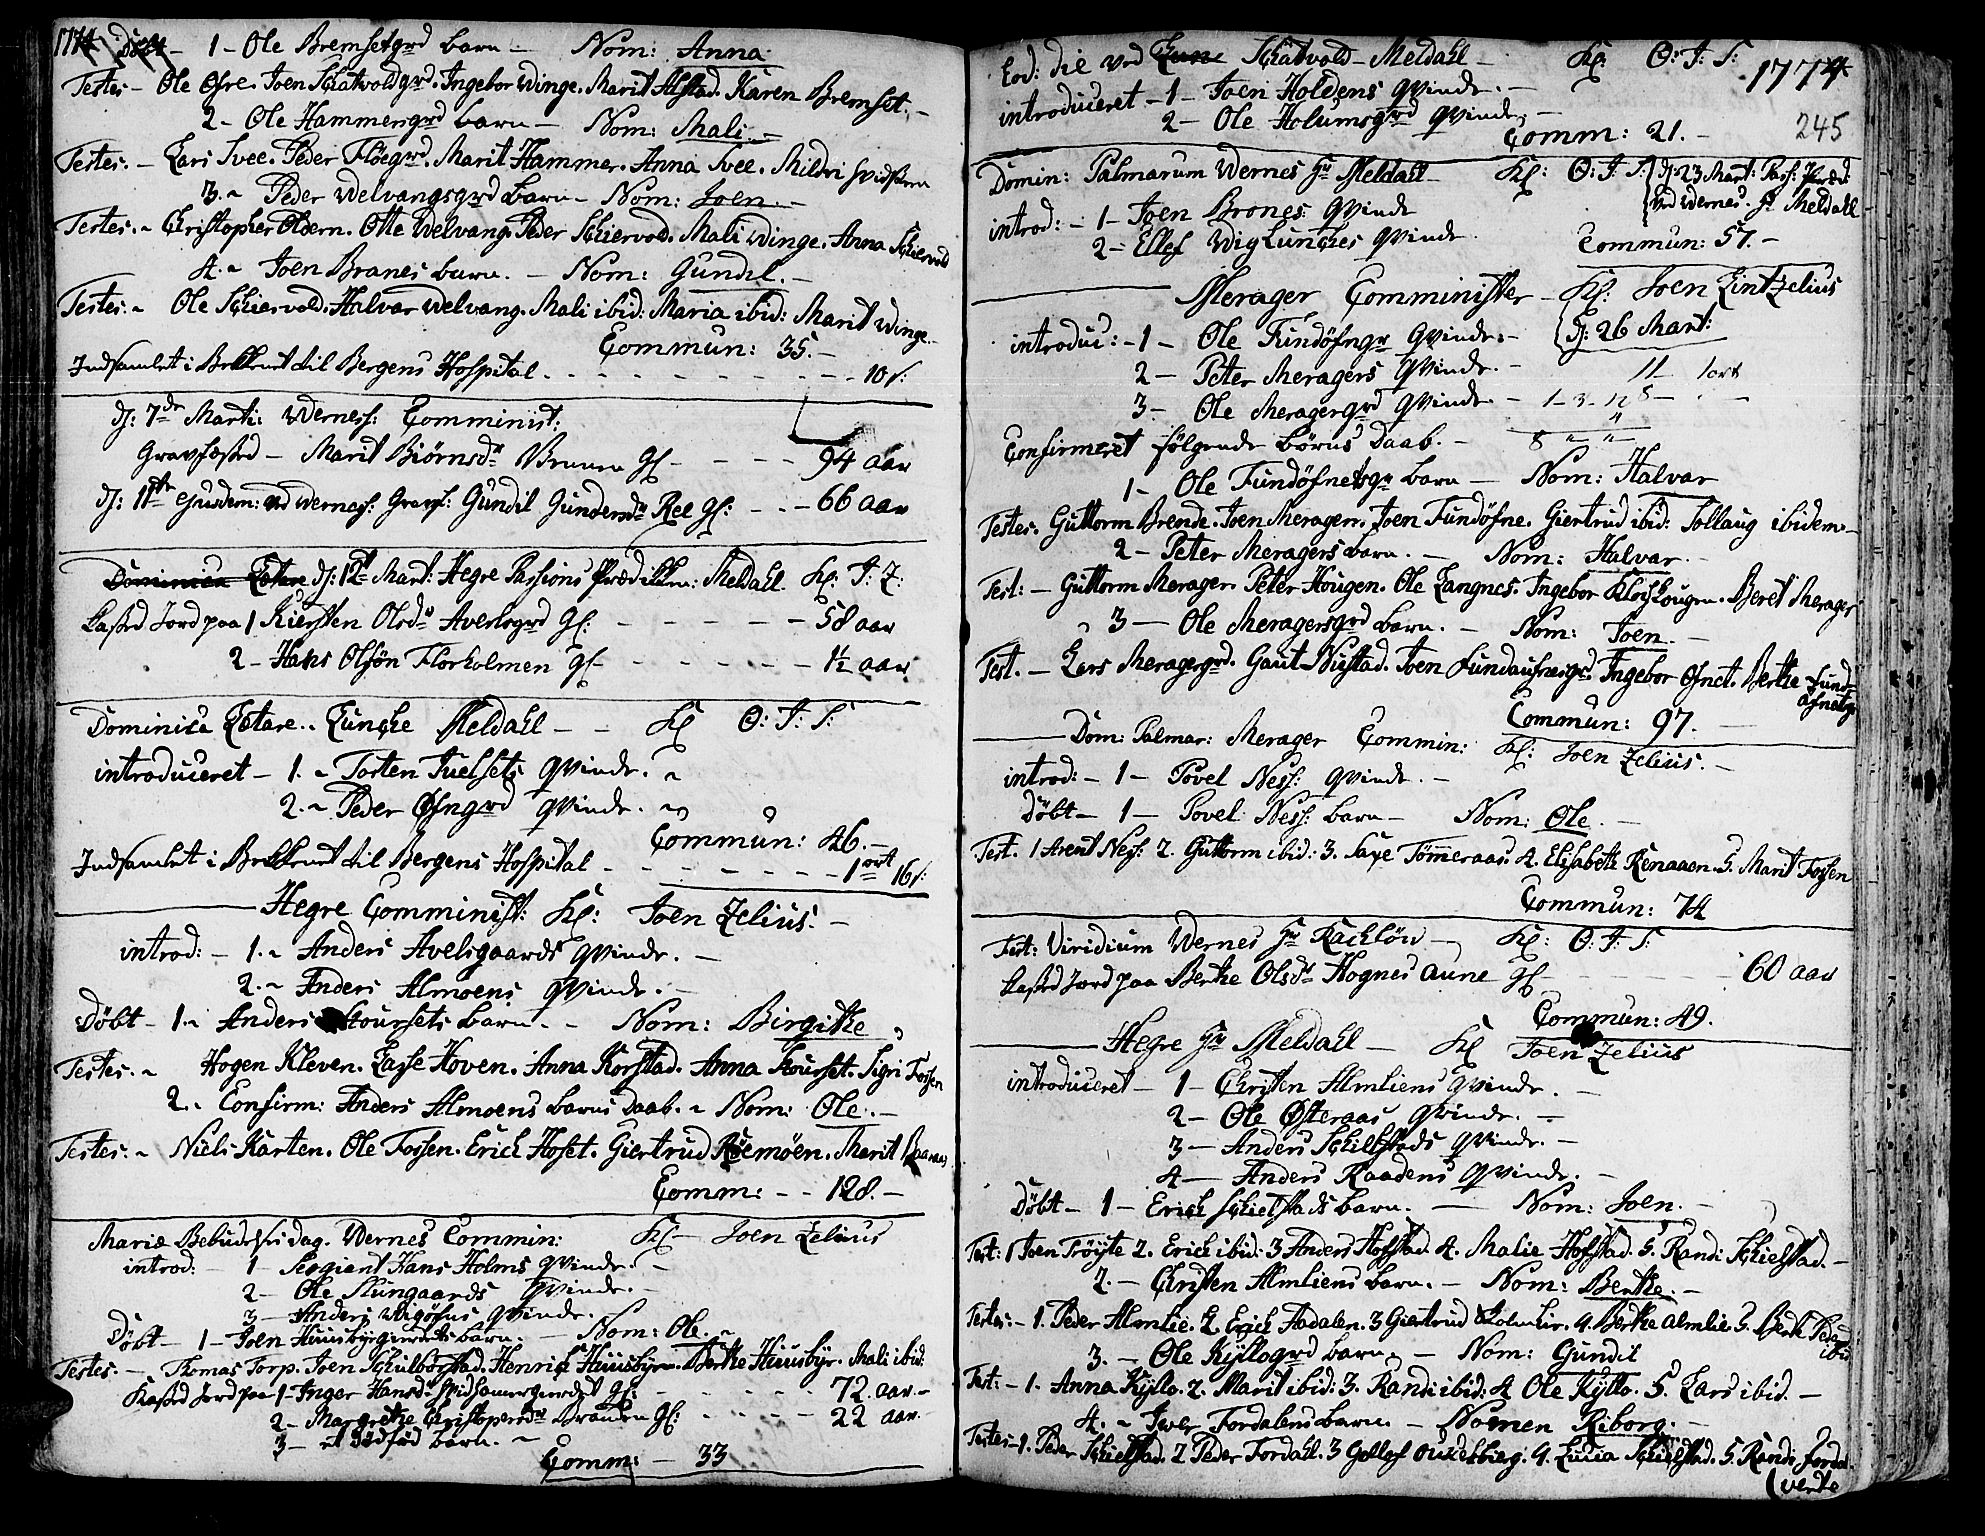 1774 Döbt - 1 - Ole Bremsetgrd barn - Nom: Anna
Testes - Ole Ofre. Joen Schatvoldgrd. Ingebor Winge. Marit Alstad. Karen Bremset. -
2 - Ole Hammergrd barn - Nom: Mali. -
Testes. - Lars Svee. Peder Flöegrd. Marit Hammer. Anna Svee. Mildri
3. - Peder Welvangsgrd barn - Nom: Joen. -
Testes. - Christopher Oldern. Otte Welvang. Peder Schiervold. Mali Winge. Anna Schiervold
4. - Joen Branes barn. - Nom: Gundil. -
Testes. - Ole Schiervold. Halvar Welvang. Mali ibid: Maria ibid: Marit Winge. -
Commun: 35. -
Indsamlet i Bekkenet til Bergens Hospital - - - - 10 s:
Dj: 7de Marti: Wernes: Comminist:
Gravfæsted - Marit Biörnsdr Brunen Gl - - - - 94 aar
Dj: 11te ejusdem: ved Wernes: Gravf: Gundil Gundersdr Ree Gl: - - - 66 aar
Dominica Lætare Dj: 12te Mart: Hegre Passions Prædiken: Meldahl Kl: J: Z:
Kasted Jord paa 1 Kiersten Olsdr Avelsgrd Gl: - - - - 58 aar
2 - Hans Olsön Florholmen Gl - - - - 1½ aar
Dominica Lætare. Luncke Meldahl - - Kl O: J: S:
introduceret - 1. - Torsten Juelsets Qvinde. -
2. - Peder Öfngrd Qvinde. -
Commun: 46. -
Indsamlet i Bekkenet til Bergens Hospital - - - - 1 ort 16 s:
Hegre Comminist: Kl: Joen Zelius. -
introd: - 1. - Anders Avelsgaards Qvinde. -
2. - Anders Almoens Qvinde. -
Döbt - 1. - Anders Koursets barn. - Nom: Birgithe
Testes. - Hogen Kleven. Lasse Hoven. Anna Korstad. Anna Kourset. Sigri Fossen
2. - Confirm: Anders Almoens barns Daab. - Nom: Ole. -
Testes. - Niels Karten. Ole Fossen. Erich Hoset. Giertrud Röemöen. Marit
Comm: - - 128. -
Mariæ Bebudelses dag. Wernes Commin: Kl - Joen Zelius
introd: - 1 - Sergiant Hans Holms Qvinde. -
2 - Ole Mungaards Qvinde. -
3 - Anders Qvinde.
Döbt - 1 - Joen Huusbygierets barn. - Nom: Ole. -
Testes. - Thomas Torp. Joen Schulbörstad. Henrich Huusbye. Berthe Huusbye. Mali ibid:
Kasted Jord paa 1 - Inger Hansdr Gl: - - - 72 aar -
2 - Margrethe Christopersdr Branden Gl: - - - 22 aar.
3 - et Dödföd barn. -
Comm: - 33
Eod: die ved Schatvold - Meldahl - Kl: O: J: S: 1774
introduceret - 1 - Joen Holdens Qvinde. -
2 - Ole Holumsgrd Qvinde -
Comm: 21. - 245
Domin: Palmarum Wernes Hr Meldahl Kl: O: J: S: Dj: 23 Mart: Pass: Præd:
ved Wernes. Hr Meldahl
introd: - 1 - Joen Brones Qvinde
2 - Ellef Wiglunches Qvinde Commun: 57. -
Merager Comminister - Kl: Joen Lintzelius
Dj: 26 Mart:
introduc: - 1 - Ole Fundöfngr Qvinde. -
2 - Peter Meragers Qvinde. - 11 1 ort
3 - Ole Meragergrd Qvinde. - 1 - 3 - 12 8 -
Confirmeret følgende börns Daab. - 8 " "
1 - Ole Fundöfnetsgr barn - Nom: Halvar
Testes: Guttorm Brende. Joen Meragen. Joen Fundöfne. Giertrud ibid: Sollaug ibidem -
2 - Peter Meragers barn. - Nom: Halvar. -
Test: - Guttorm Merager. Peter Hougen. Ole Langnes. Ingebor Klochhougen. Beret Merager
3 - Ole Meragersgrd barn. - Nom: Joen. -
Test. - Lars Meragergrd. Gaut Niustad. Joen Fundaufnesgrd. Ingebor Ofnet. Berthe Fund-
öfnetg
Commun: 97. -
Dom: Palmar: Merager Commin: Kl: Joen Zelius. -
introd: - 1 - Povel Ness: Qvinde. -
Döbt - 1 - Povel Ness: barn - Nom: Ole. -
Test. 1 Arent Ness: 2. Guttorm ibid: 3. Saxe Tömmeraas. 4. Elisabeth Renaaen. 5. Marit Fossen
Commun: 74
Fest: Viridium Wernes Hr Rachlöw - Kl: O: J: S:
Kasted Jord paa Berthe Olsdr Hognes Aune Gl - - - - 60 aar
Commun: 49.
Hegre Hr Meldahl - Kl Joen Zelius
introduceret - 1 - Christen Almliens Qvinde. -
2 - Ole Österaas Qvinde. -
3 - Anders Schielstads Qvinde. -
4 - Anders Raadens Qvinde. -
Döbt - 1 - Erich Schielstads barn. - Nom: Joen. -
Test: 1 Joen Tröyte 2. Erich ibid: 3 Anders Hofstad. 4. Malie Hofstad. 5. Randi Schielstad. -
2. - Christen Almliens barn. - Nom: Berthe. -
Testes: - 1. Peder Almlie. 2. Erich Aadalen. 3 Giertrud 4. Berthe Almlie. 5. Berit Peders
ibid
3. - Ole Kyllogrd barn. - Nom: Gundil
Test: - 1. Anna Kyllo. 2. Marit ibid: 3. Randi ibid: 4 Ole Kyllo. 5. Lars ibid. -
4. - Iver Fordalens barn. - Nomen Riborg. -
Testes - 1. Peder Schielstad. 2 Peder Fordahl. 3 Gollef 4. Lucia Schielstad. 5. Randi Fordal
(verte